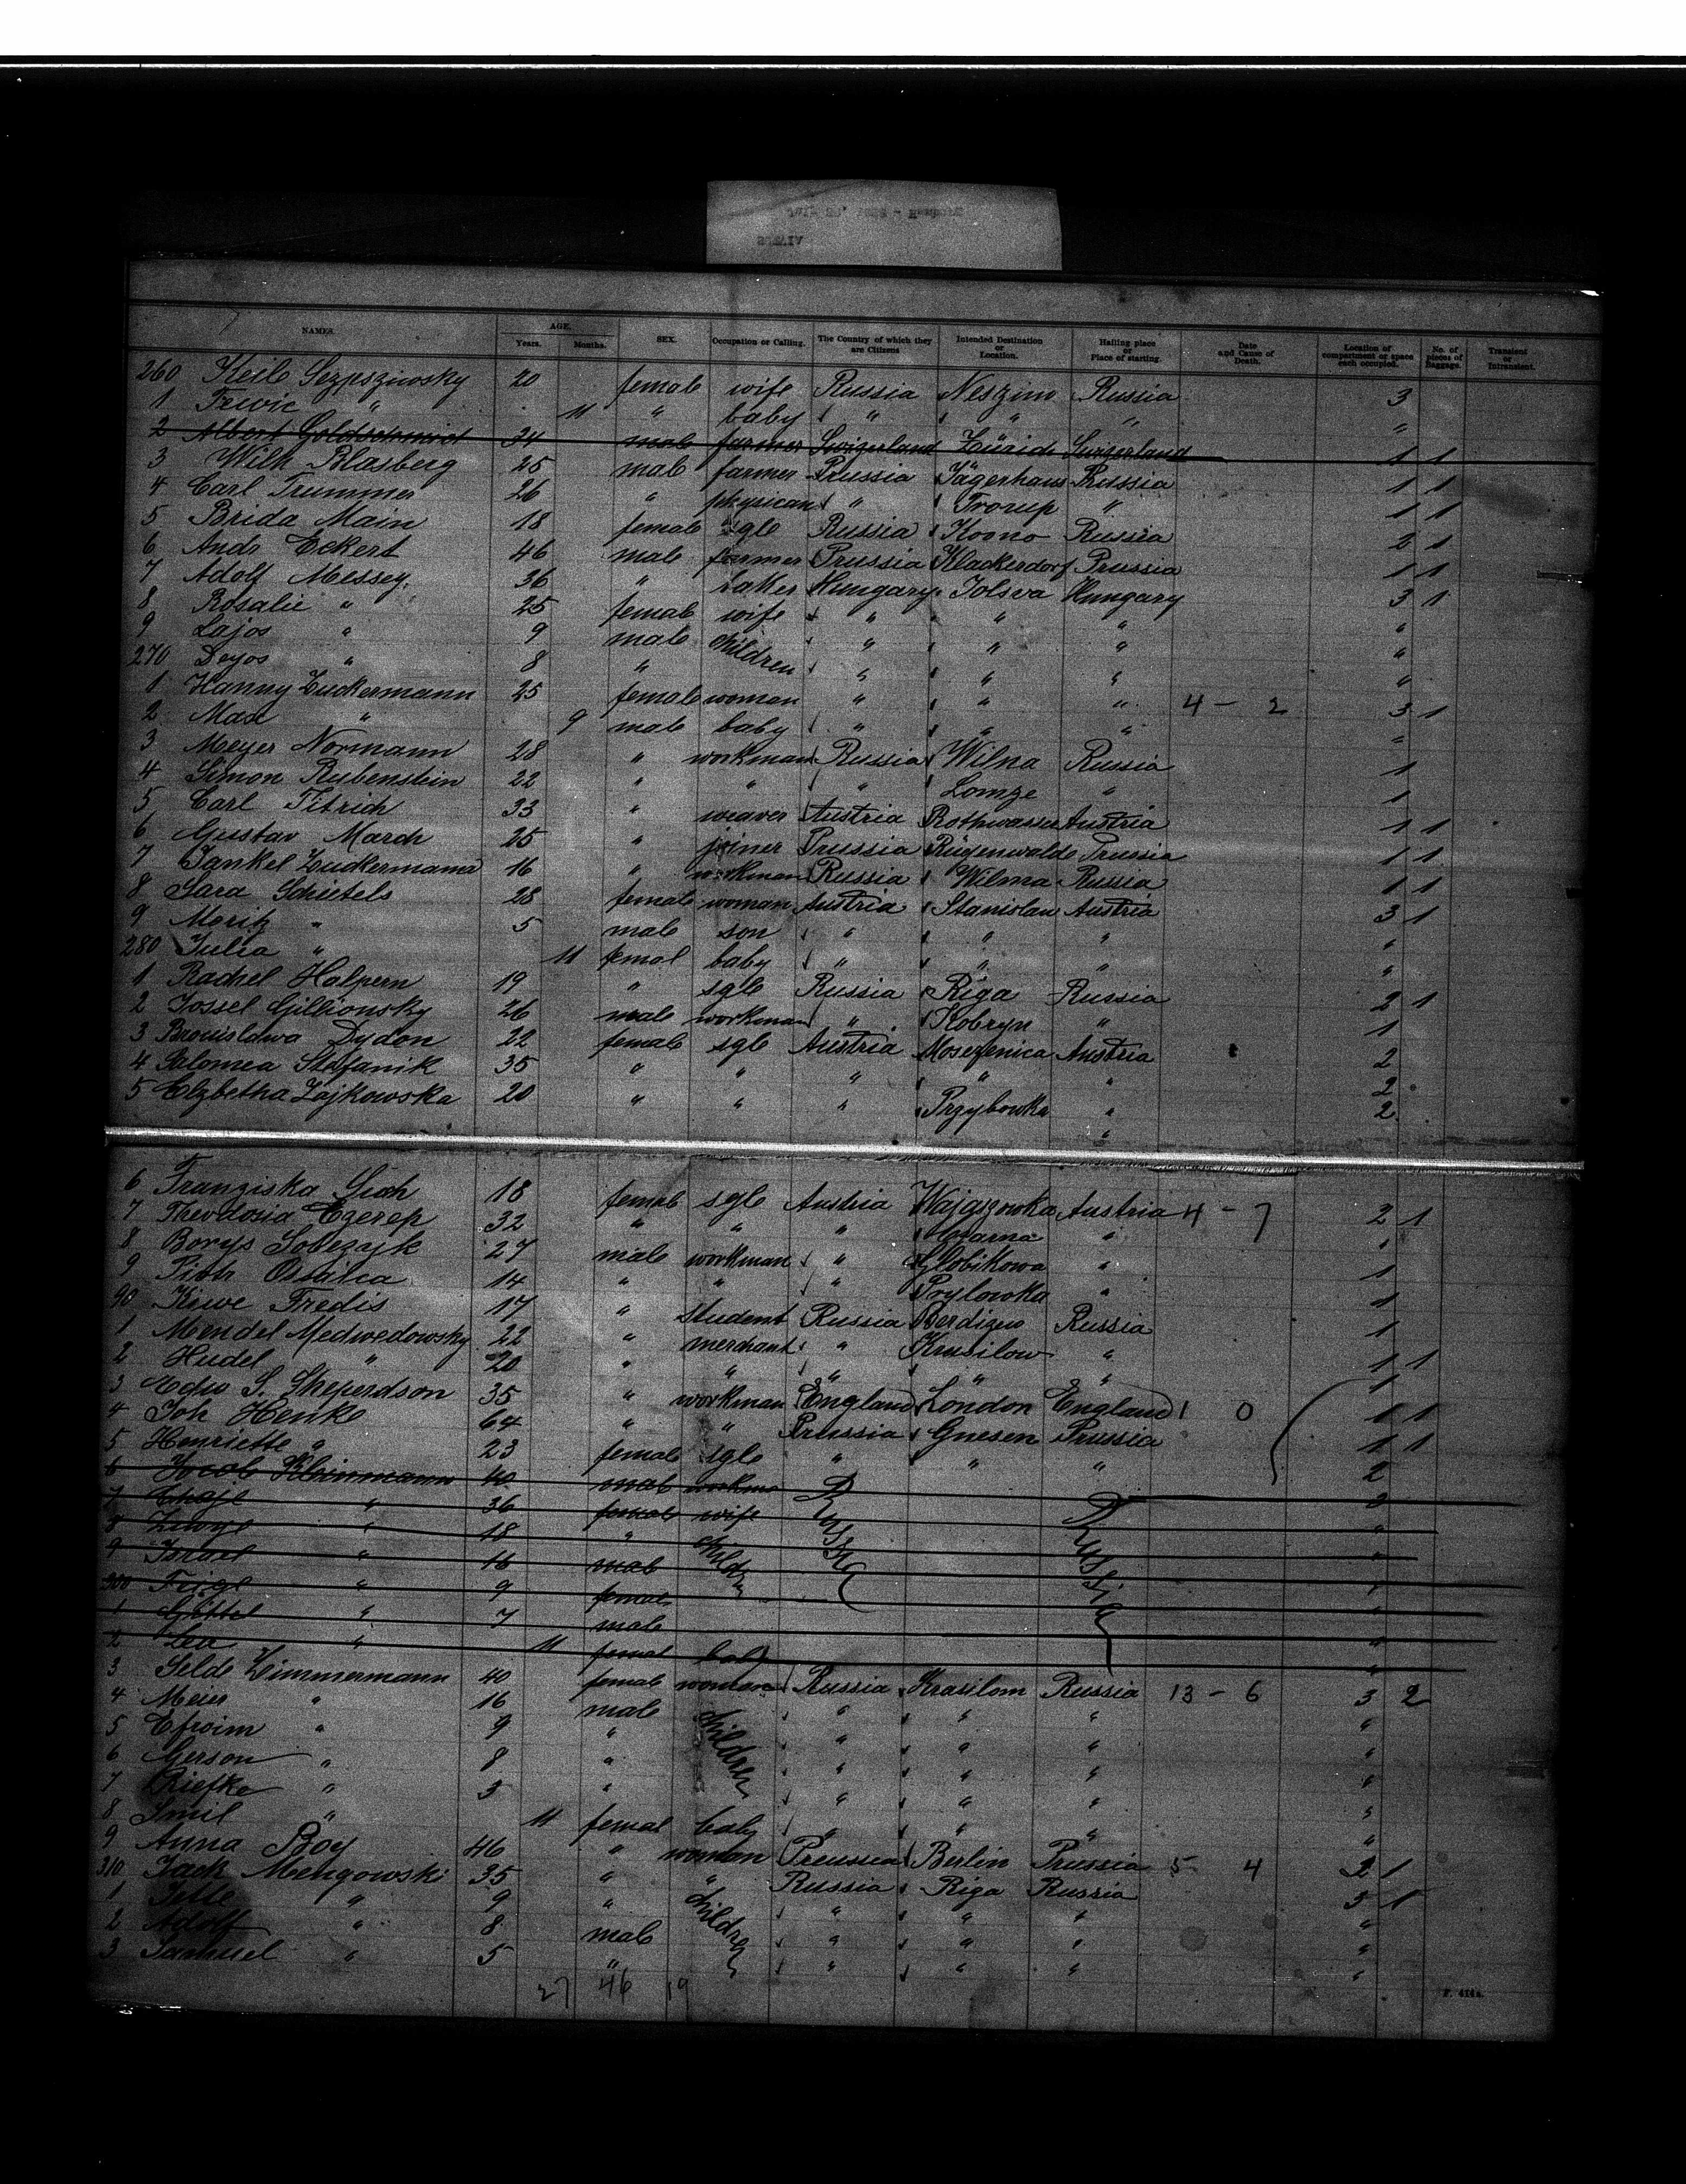 NAMES. AGE. Years. Months. SEX. Occupation or Calling. The Country of which they are Citizens Intended Destination or Location. Hailing place or Place of starting. Date and Cause of Death. Location of compartment or space each occupied. No. of pieces of Baggage. Transient or Intransient.
260 Keile 20 female wife Russia Russia 3
1 " 11 " baby " " " "
2 Albert Goldschmid 24 male farmer Swizerland Zürich Swizerland 1 1
3 Wilh Blasberg 25 male farmer Prussia Jägerhaus Prussia 1 1
4 Carl Trummer 26 " physican " Trorup " 1 1
5 Brida Main 18 female sgle Russia Kowno Russia 2 1
6 Andr Eckert 46 male farmer Prussia Klackerdorf Prussia 1 1
7 Adolf Messey 36 " baker Hungary Jolsva Hungary 3 1
8 Rosalie " 25 female wife " " " "
9 Lajos " 9 male children " " " "
270 Deyos " 8 " " " " "
1 Hanny Zuckermann 25 female woman " " " 4 - 2 3 1
2 Max " 9 male baby " " " "
3 Meyer Normann 28 " workman Russia Wilna Russia 1
4 Simon Rubenstein 22 " " " Lomze " 1
5 Carl Titrich 33 " weaver Austria Rothwasser Austria 1 1
6 Gustav March 25 " joiner Prussia Rügenwalde Prussia 1 1
7 Jankel Zuckermann 16 " workman Russia Wilna Russia 1 1
8 Sara Schietels 28 female woman Austria Stanislau Austria 3 1
9 Moritz " 5 male son " " " "
280 Julia " 11 femal baby " " " "
1 Rachel Halpern 19 " sgle Russia Riga Russia 2 1
2 Jossel Gillionsky 26 male workman " Kobryn " 1
3 Bronislawa Dydon 22 female sgle Austria Moszenica Austria 2
4 Salomea Stefanik 35 " " " " " 2
5 Elzbetha Zajkowska 20 " " " Przybowka " 2
6 Franziska Sich 18 female sgle Austria Wajaszowka Austria 4 - 7 2 1
7 Theodozia Ezerep 32 " " " " "
8 Borys Sobczyk 27 male workman " Globikowa " 1
9 Piotr 14 " " " " 1
90 Kiwe Fredis 17 " student Russia Berdizew Russia 1
1 Mendel Medwedowsky 22 " merchant " Krasilow " 1 1
2 Hudel " 20 " " " " " 1
3 Edw S. Sheperdson 35 " workman England London England 1 0 1 1
4 Joh Henke 64 " " Prussia Gnesen Prussia 1 1
5 Henriette " 23 female sgle " " " 2
6 Jacob Kleinmann 40 male workma Russia Russia 3
7 Chaje " 36 female wife "
8 " 18 " children "
9 Israel " 16 male "
300 Feige " 9 femal "
1 Gittel " 7 male "
2 Lea " 11 femal baby "
3 Selde Zimmermann 40 female woman Russia Krasilom Russia 13 - 6 3 2
4 Meier " 16 male children " " " "
5 Efroim " 9 " " " " "
6 Gerson " 8 " " " " "
7 Riefke " 3 " " " " "
8 Smil " 11 femal baby " " " "
9 Anna Boy 46 " woman Preussia Berlin Prussia 5 4 2 1
310 Jack Mengowski 35 " " Russia Riga Russia 3 1
1 " 9 " children " " " "
2 Adolf " 8 male " " " "
3 Samuel " 5 " " " " "
27 46 19
F. 414a.